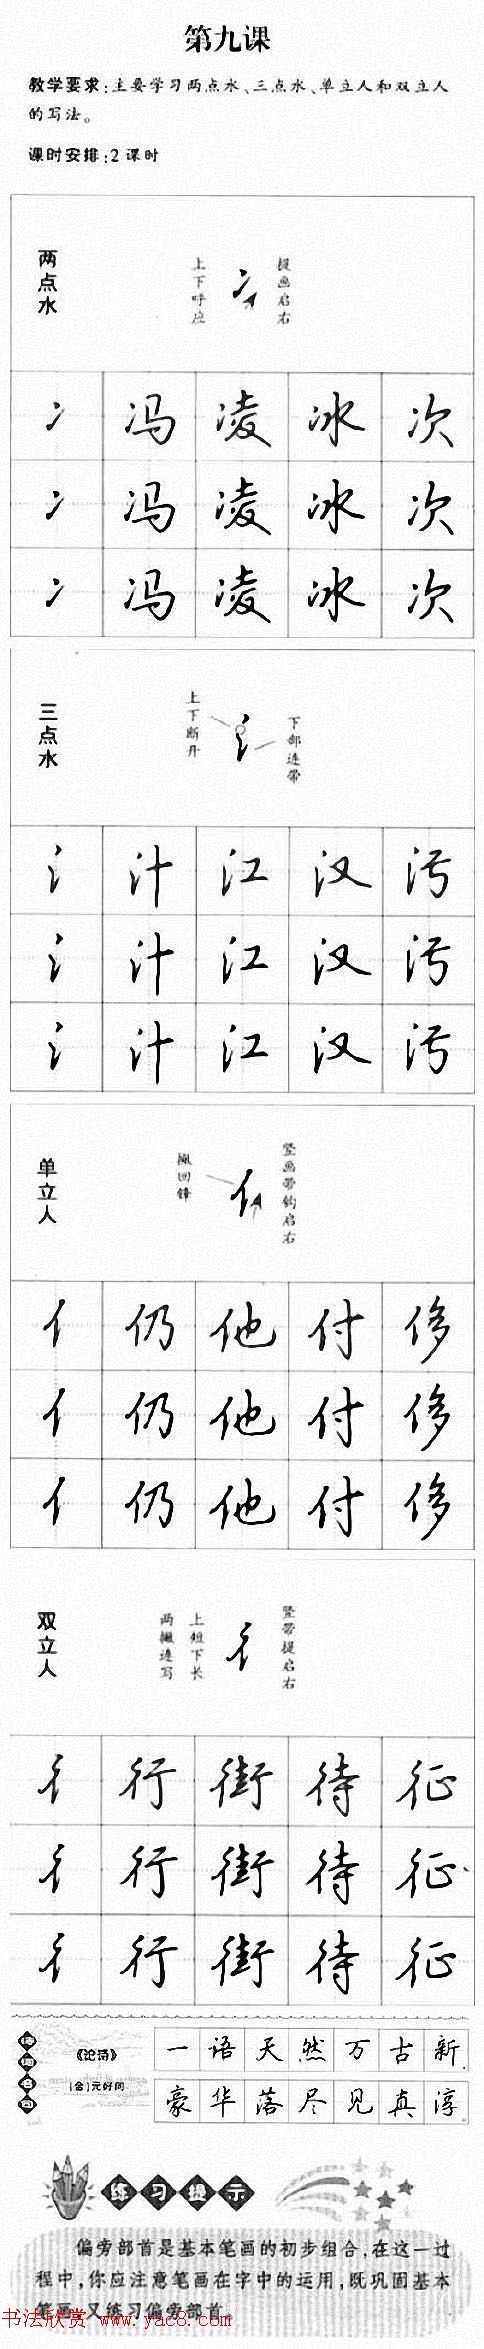 第九课
教学要求:主要学习两点水、三点水、单立人和双立人
的写法。
课时安排:2课时
两点水
上下呼应
提画启右
冫 冯 凌 冰 次
冫 冯 凌 冰 次
冫 冯 凌 冰 次
三点水
上下断开
下部连带
氵 汁 江 汉 污
氵 汁 江 汉 污
氵 汁 江 汉 污
单立人
撇回锋
竖画带钩启右
亻 仍 他 付 侈
亻 仍 他 付 侈
亻 仍 他 付 侈
双立人
上短下长
两撇连写
竖带提启右
彳 行 街 待 征
彳 行 街 待 征
彳 行 街 待 征
诗词名句
《论诗》
(金)元好问
一语天然万古新
豪华落尽见真淳
练习提示
偏旁部首是基本笔画的初步组合,在这一过
程中,你应注意笔画在字中的运用,既巩固基本
笔画,又练习偏旁部首
书法欣赏 www.yac8.com